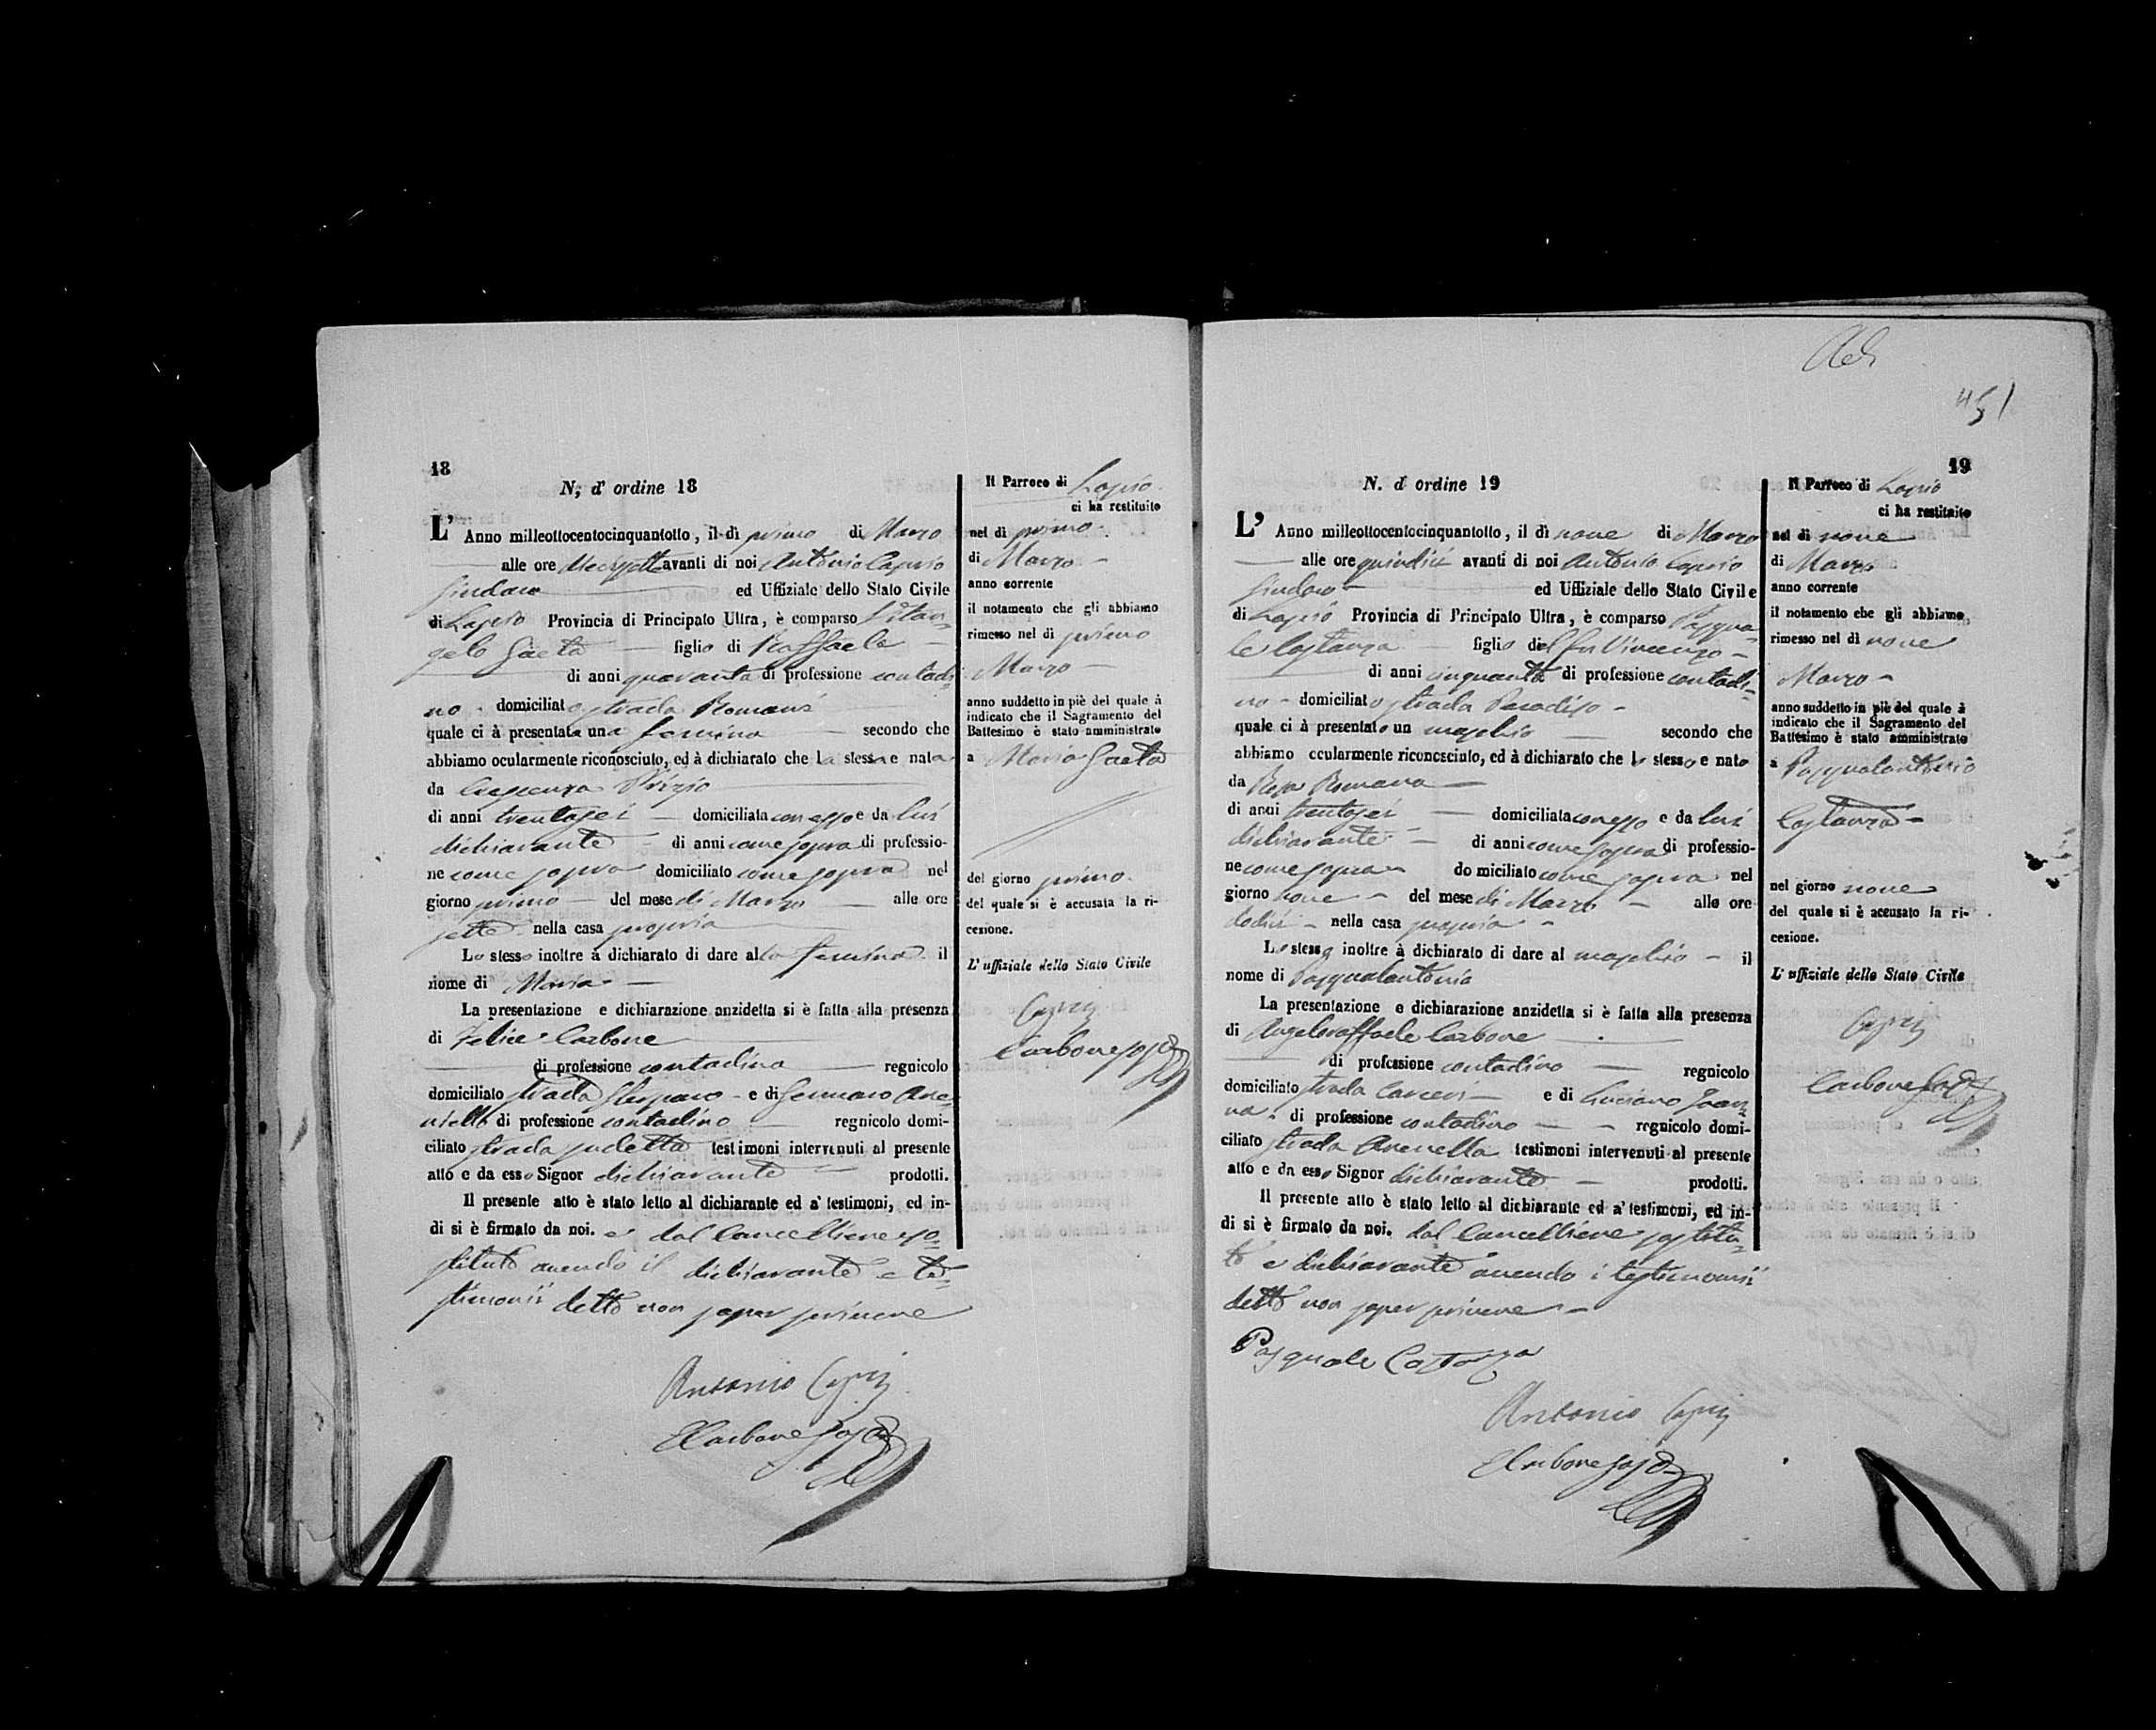 18
N; d' ordine 18
L' Anno milleottocentocinquantotto, il dì primo di Marzo
alle ore avanti di noi Antonio Caprio
Sindaco ed Uffiziale dello Stato Civile
di Lapio Provincia di Principato Ultra, è comparso Vitan-
gelo Gaeta figlio di Raffaele
di anni quaranta di professione contadi-
no domiciliato strada Romani
quale ci à presentata una femina secondo che
abbiamo ocularmente riconosciuto, ed à dichiarato che la stessa e nata
da Crescenza
di anni trentasei domiciliata con esso e da lui
dichiarante di anni come sopra di professio-
ne come sopra domiciliato come sopra nel
giorno primo del mese di Marzo alle ore
sette nella casa propria
Lo stesso inoltre à dichiarato di dare alla femina il
nome di Maria
La presentazione e dichiarazione anzidetta si è fatta alla presenza
di Felice Carbone
di professione contadino regnicolo
domiciliato strada e di Gennaro Are-
niello di professione contadino regnicolo domi-
ciliato strada testimoni intervenuti al presente
atto e da esso Signor dichiarante prodotti.
Il presente atto è stato letto al dichiarante ed a' testimoni, ed in-
di si è firmato da noi. e dal Cancelliere so-
stituto avendo il dichiarante e te-
stimonii detto non saper scrivere
Antonio Caprio
Carbone sosto
Il Parroco di Lapio
ci ha restituito
nel dì primo
di Marzo
anno corrente
il notamento che gli abbiamo
rimesso nel dì primo
Marzo
anno suddetto in piè del quale à
indicato che il Sagramento del
Battesimo è stato amministrato
a Maria Gaeta
del giorno primo
del quale si è accusata la ri-
cezione.
L' uffiziale dello Stato Civile
Caprio
Carbone sosto
451
19
N. d' ordine 19
L' Anno milleottocentocinquantotto, il dì nove di Marzo
alle ore quindici avanti di noi Antonio Caprio
Sindaco ed Uffiziale dello Stato Civile
di Lapio Provincia di Principato Ultra, è comparso Pasqua-
le Costanza figlio del fu Vincenzo
di anni cinquanta di professione contadi-
no domiciliato strada Paradiso
quale ci à presentato un maschio secondo che
abbiamo ocularmente riconosciuto, ed à dichiarato che lo stesso e nato
da Rosa Romano
di anni trentasei domiciliata con esso e da lui
dichiarante di anni come sopra di professio-
ne come sopra domiciliato come sopra nel
giorno nove del mese di Marzo alle ore
dodici nella casa propria
Lo stesso inoltre à dichiarato di dare al maschio il
nome di Pasqualantonio
La presentazione e dichiarazione anzidetta si è fatta alla presenza
di Angeloraffaele Carbone
di professione contadino regnicolo
domiciliato strada Carceri e di Luciano Ioan-
na di professione contadino regnicolo domi-
ciliato strada Arenella testimoni intervenuti al presente
atto e da esso Signor dichiarante prodotti.
Il presente atto è stato letto al dichiarante ed a' testimoni, ed in-
di si è firmato da noi. dal Cancelliere sostitu-
to e dichiarante avendo i testimonii
detto non saper scrivere
Pasquale Costanza
Antonio Caprio
Carbone sosto
Il Parroco di Lapio
ci ha restituito
nel dì nove
di Marzo
anno corrente
il notamento che gli abbiamo
rimesso nel dì nove
Marzo
anno suddetto in piè del quale à
indicato che il Sagramento del
Battesimo è stato amministrato
a Pasqualantonio
Costanza
nel giorno nove
del quale si è accusato la ri-
cezione.
L' uffiziale dello Stato Civile
Caprio
Carbone sosto